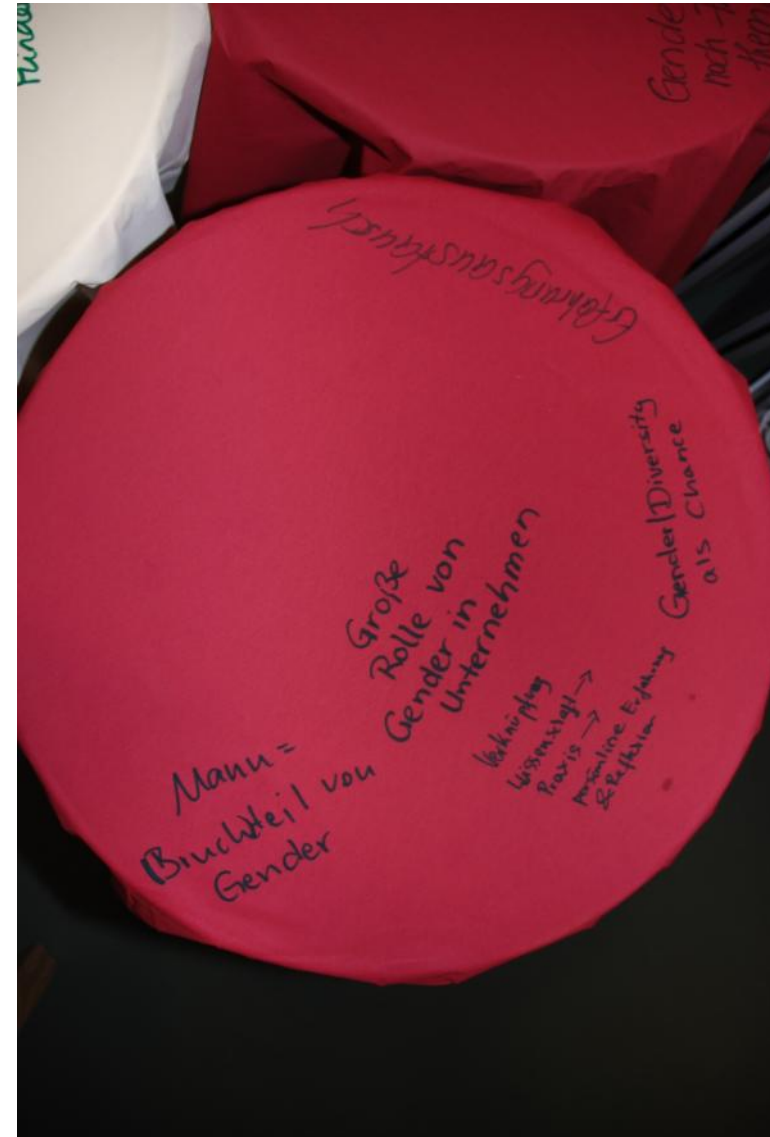 Gender
noch
Erfahrungsaustausch
Gender/Diversity
als Chance
Große
Rolle von
Gender in
Unternehmen
Verknüpfung
Wissenschaft →
Praxis →
persönliche Erfahrung
& Reflexion
Mann =
Bruchteil von
Gender